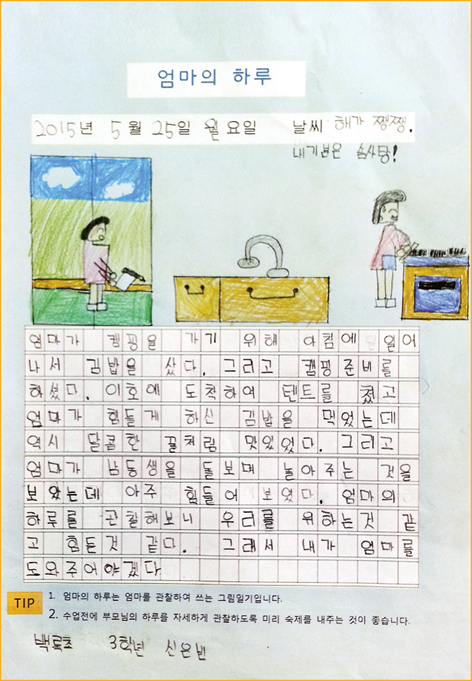 엄마의 하루
2015년 5월 25일 월요일 날씨 해가 쨍쨍.
내기분은 솜사탕!
엄마가 캠핑을 가기 위해 아침에 일어
나서 김밥을 샀다. 그리고 캠핑준비를
하셨다. 이호에 도착하여 텐트를 쳤고
엄마가 힘들게 하신 김밥을 먹었는데
역시 달콤한 꿀처럼 맛있었다. 그리고
엄마가 남동생을 돌보며 놀아주는 것을
보았는데 아주 힘들어 보였다. 엄마의
하루를 관찰해보니 우리를 위하는것 같
고 힘든것 같다. 그래서 내가 엄마를
도와주어야겠다
TIP
1. 엄마의 하루는 엄마를 관찰하여 쓰는 그림일기입니다.
2. 수업전에 부모님의 하루를 자세하게 관찰하도록 미리 숙제를 내주는 것이 좋습니다.
백록초 3학년 신은빈